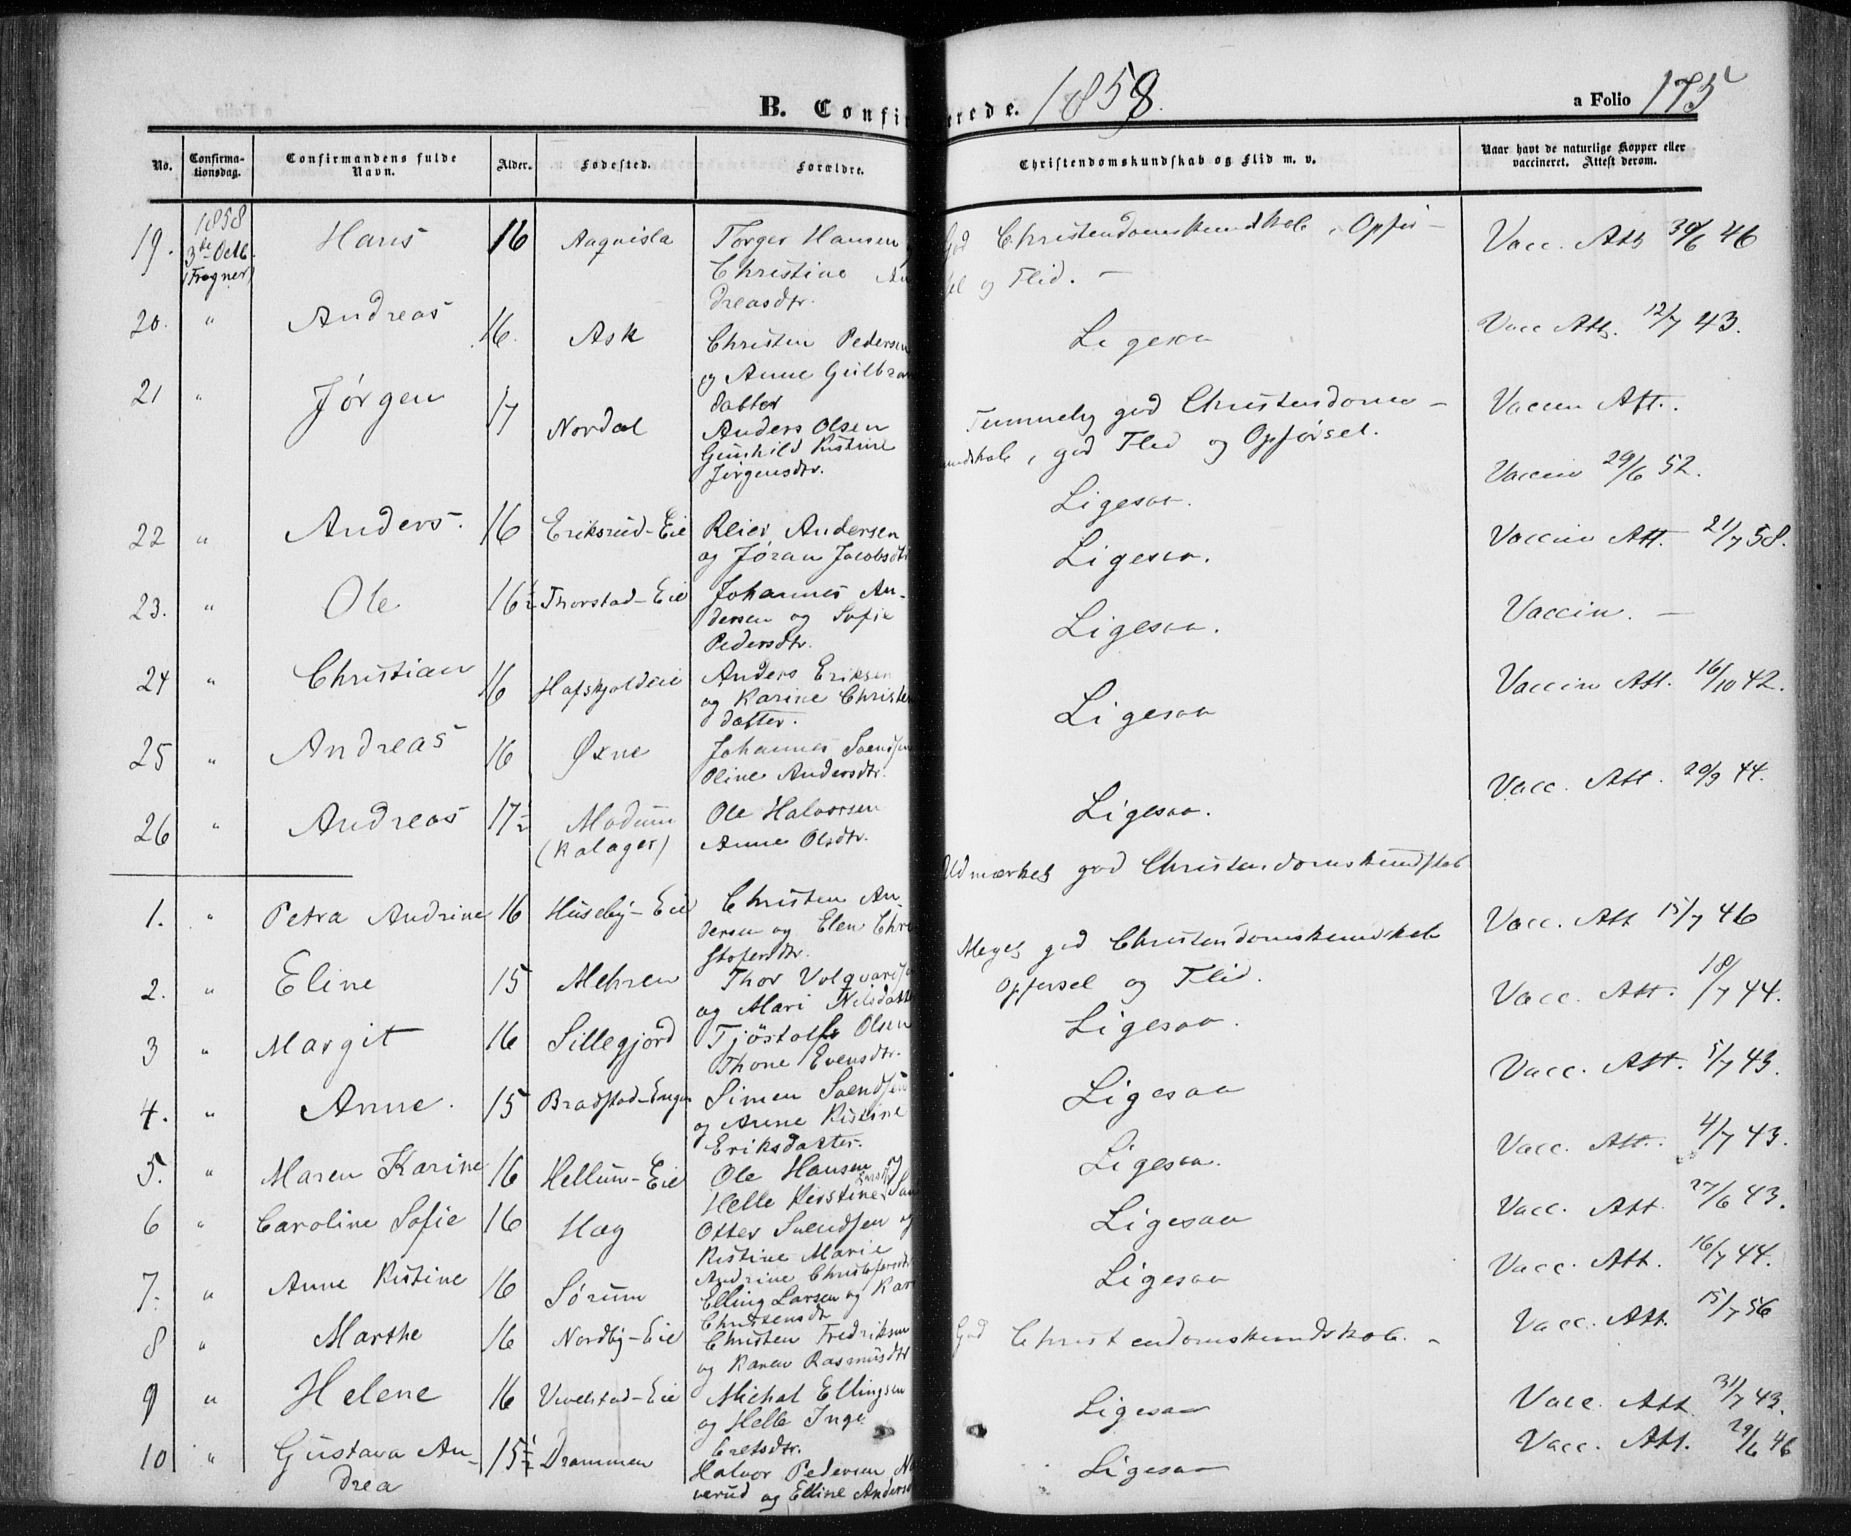 B. Confi rede. 1858. a Folio 175
No. Confirma-tionsdag. Confirmandens fulde Navn. Alder. Fødested. Forældre. Christendomskundskab og Flid m. v. Naar havt de naturlige Kopper eller vaccineret. Attest derom.
1858
19. 3de Octb. Hans 16 Torger Hansen God Christendomskundskab, Opfør-
(Frogner) Christine An sel og Flid. – Vacc. Att 30/6 46
dreasdtr.
20. " Andreas 16. Ask Christen Pedersen Ligesaa Vacc Att. 12/7 43.
og Anne Gulbran
datter
21 " Jørgen 17 Nordal Anders Olsen Temmelig god Christendoms- Vaccin Att.
Gunhild Kistine undskab, god Flid og Opførsel.
Jørgensdtr. Vaccin 29/6 52.
Ligesaa.
22 " Anders. 16 Eriksrud-Eie Reier Andersen Vaccin Att. 21/7 58.
og Jøran Jacobsdtr Ligesaa.
23. " Ole 16½ Thorstad-Eie Johannes An- Vaccin. –
dersen og Sofie Ligesaa.
Pedersdtr.
24 " Christian 16 Hafskjoldeie Anders Eriksen Vaccin Att. 16/10 42.
og Karine Christen Ligesaa
datter.
25 " Andreas 16 Øxne Johannes Svendsen
Oline Andersdtr. Vacc. Att. 20/9 44.
26 " Andreas 17½ Modum Ole Halvorsen Ligesaa.
(Kalager) Anne Olsdtr.
Udmærket god Christendomskundskab
1. " Petra Andrine 16 Huseby-Eie Christen An- Vacc. Att 15/7 46
dersen og Elen Chri Meget god Christendomskundskab
stofersdtr. Opførsel og Flid.
2. " Eline 15 Mehren Thor Volqvardsen Vacc. Att. 18/7 44.
og Mari Nilsdatter Ligesaa.
3 " Margit 16 Sillegjord Tjöstolf Olsen
Thone Evensdtr. Vacc. Att. 5/7 43.
4. " Anne. 15 Bradstad-Enger Simen Svendsen Ligesaa
og Anne Kistine
Eriksdatter. Vacc. Att. 4/7 43.
5. " Maren Karine 16 Hellum-Eie Ole Hansen og Ligesaa.
Helle Kirstine Vacc. Att. 27/6 43.
6 " Caroline Sofie 16 Hæg Otter Svendsen og Ligesaa
Kistine Marie
Andrine Christofersdtr Vacc. Att. 16/7 44.
7. " Anne Kistine 16 Sørum Elling Larsen og Kari Ligesaa
Christensdtr Vacc. Att. 15/7 56
8 " Marthe 16 Nordby-Eie Christen Fredriksen God Christendomskundskab. –
og Karen Rasmusdtr
9 " Helene 16 Vivelstad-Eie Michal Ellingsen Vacc. Att. 31/7 43.
og Helle Inge Ligesaa
bretsdtr. Vacc. Att. 29/6 46
10 " Gustava An- 15½ Drammen Halvor Pedersen Ligesaa
drea verud og Elline Anders